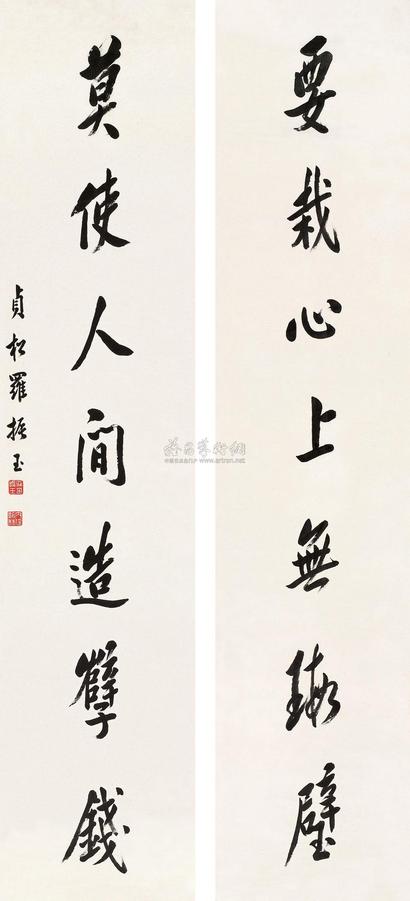 要栽心上無瑕璧
莫使人間造孽錢
貞松羅振玉
雅昌藝術網
www.artron.net